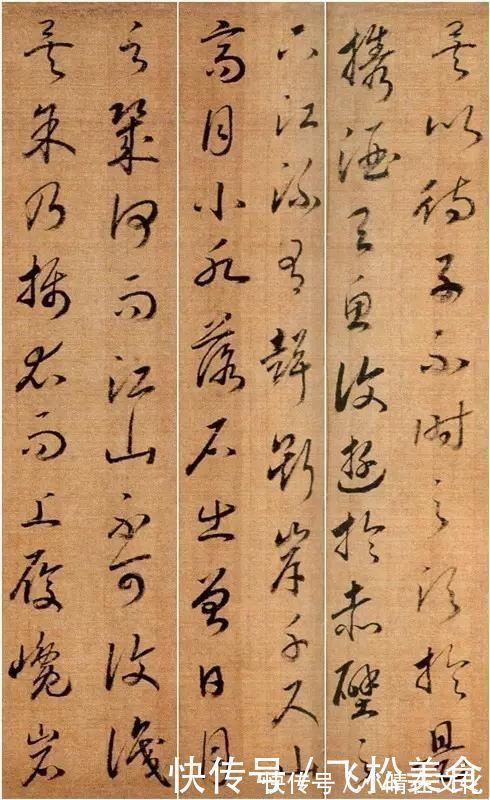 矣以待子不時之須於是
攜酒與魚復遊於赤壁之
下江流有聲斷岸千尺山
高月小水落石出曾日月
之幾何而江山不可復識
矣余乃攝衣而上履巉岩
快传号 / 飞松美食
快传号